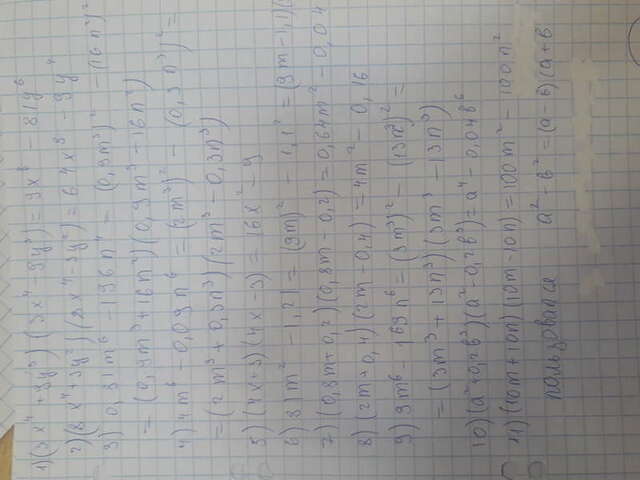 1) (3x⁴ + 9y³) (3x⁴ - 9y³) = 9x⁸ - 81y⁶
2) (8x⁴ + 3y²) (8x⁴ - 3y²) = 64x⁸ - 9y⁴
3) 0,81m⁶ - 196n⁴ = (0,9m³)² - (16n²)²
= (0,9m³ + 16n²) (0,9m³ - 16n²)
4) 4m⁶ - 0,09n⁶ = (2m³)² - (0,3n³)² =
= (2m³ + 0,3n³) (2m³ - 0,3n³)
5) (4x + 3) (4x - 3) = 16x² - 9
6) 81m² - 1,21 = (9m)² - 1,1² = (9m - 1,1)(
7) (0,8m + 0,2) (0,8m - 0,2) = 0,64m² - 0,04
8) (2m + 0,4) (2m - 0,4) = 4m² - 0,16
9) 9m⁶ - 169n⁶ = (3m³)² - (13n³)² =
= (3m³ + 13n³) (3m³ - 13n³)
10) (a² + 0,2b³) (a² - 0,2b³) = a⁴ - 0,04b⁶
11) (10m + 10n) (10m - 10n) = 100m² - 100n²
пользовался a² - b² = (a - b) (a + b